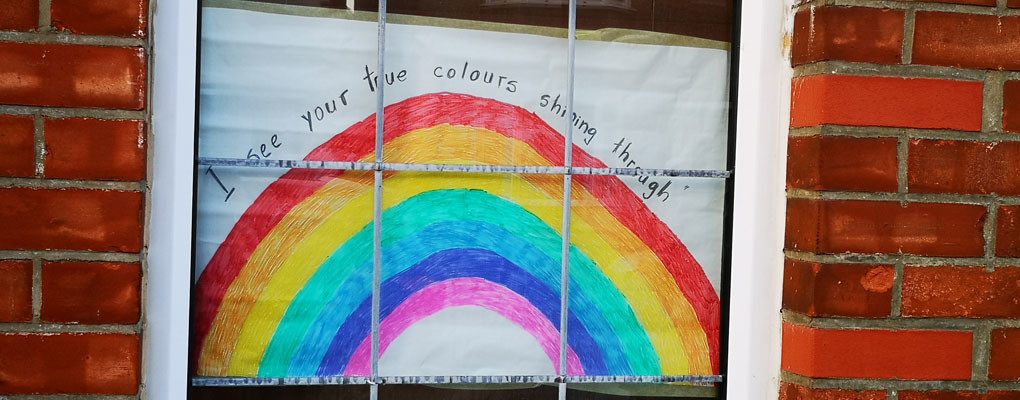 I see your true colours shining through"